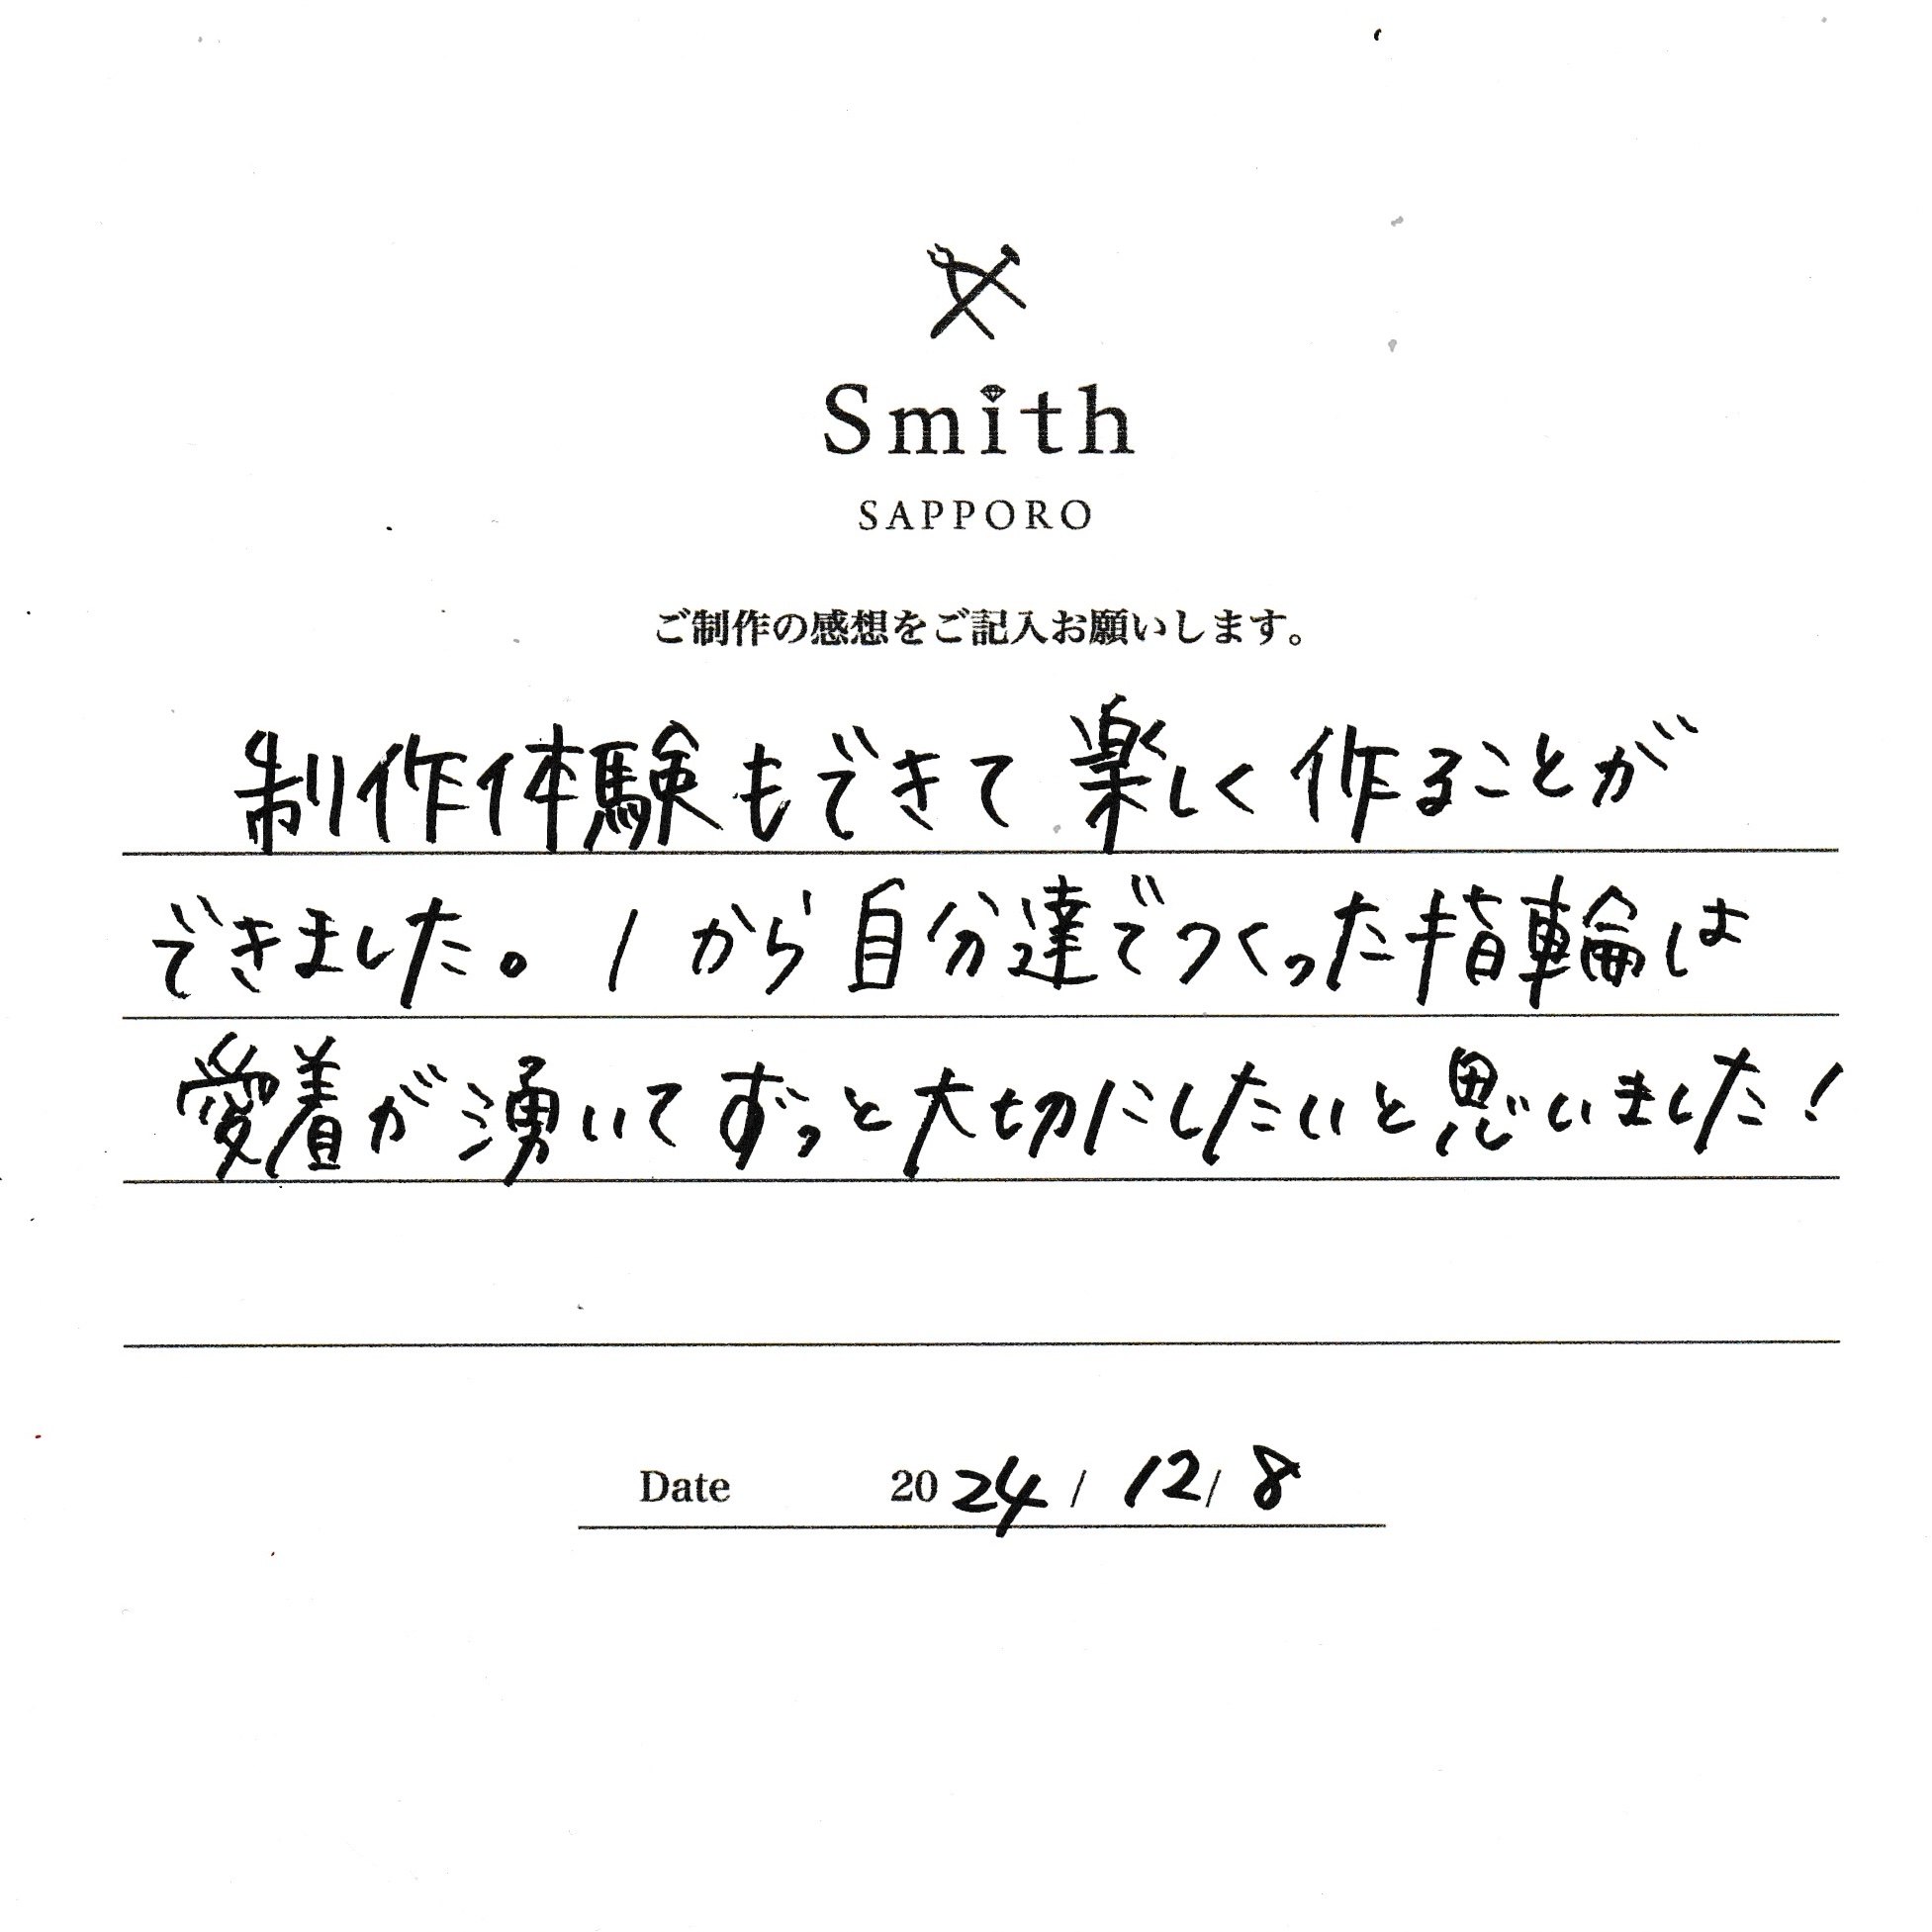 Smith
SAPPORO
ご制作の感想をご記入お願いします。
制作体験もできて楽しく作ることが
できました。1から自分達でつくった指輪は
愛着が湧いてずっと大切にしたいと思いました!
Date 2024 / 12 / 8